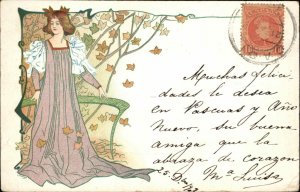 Muchas felici
dades le desea
en Pascuas y Año
Nuevo, su buena
amiga que la
abraza de corazon
Mª Luisa